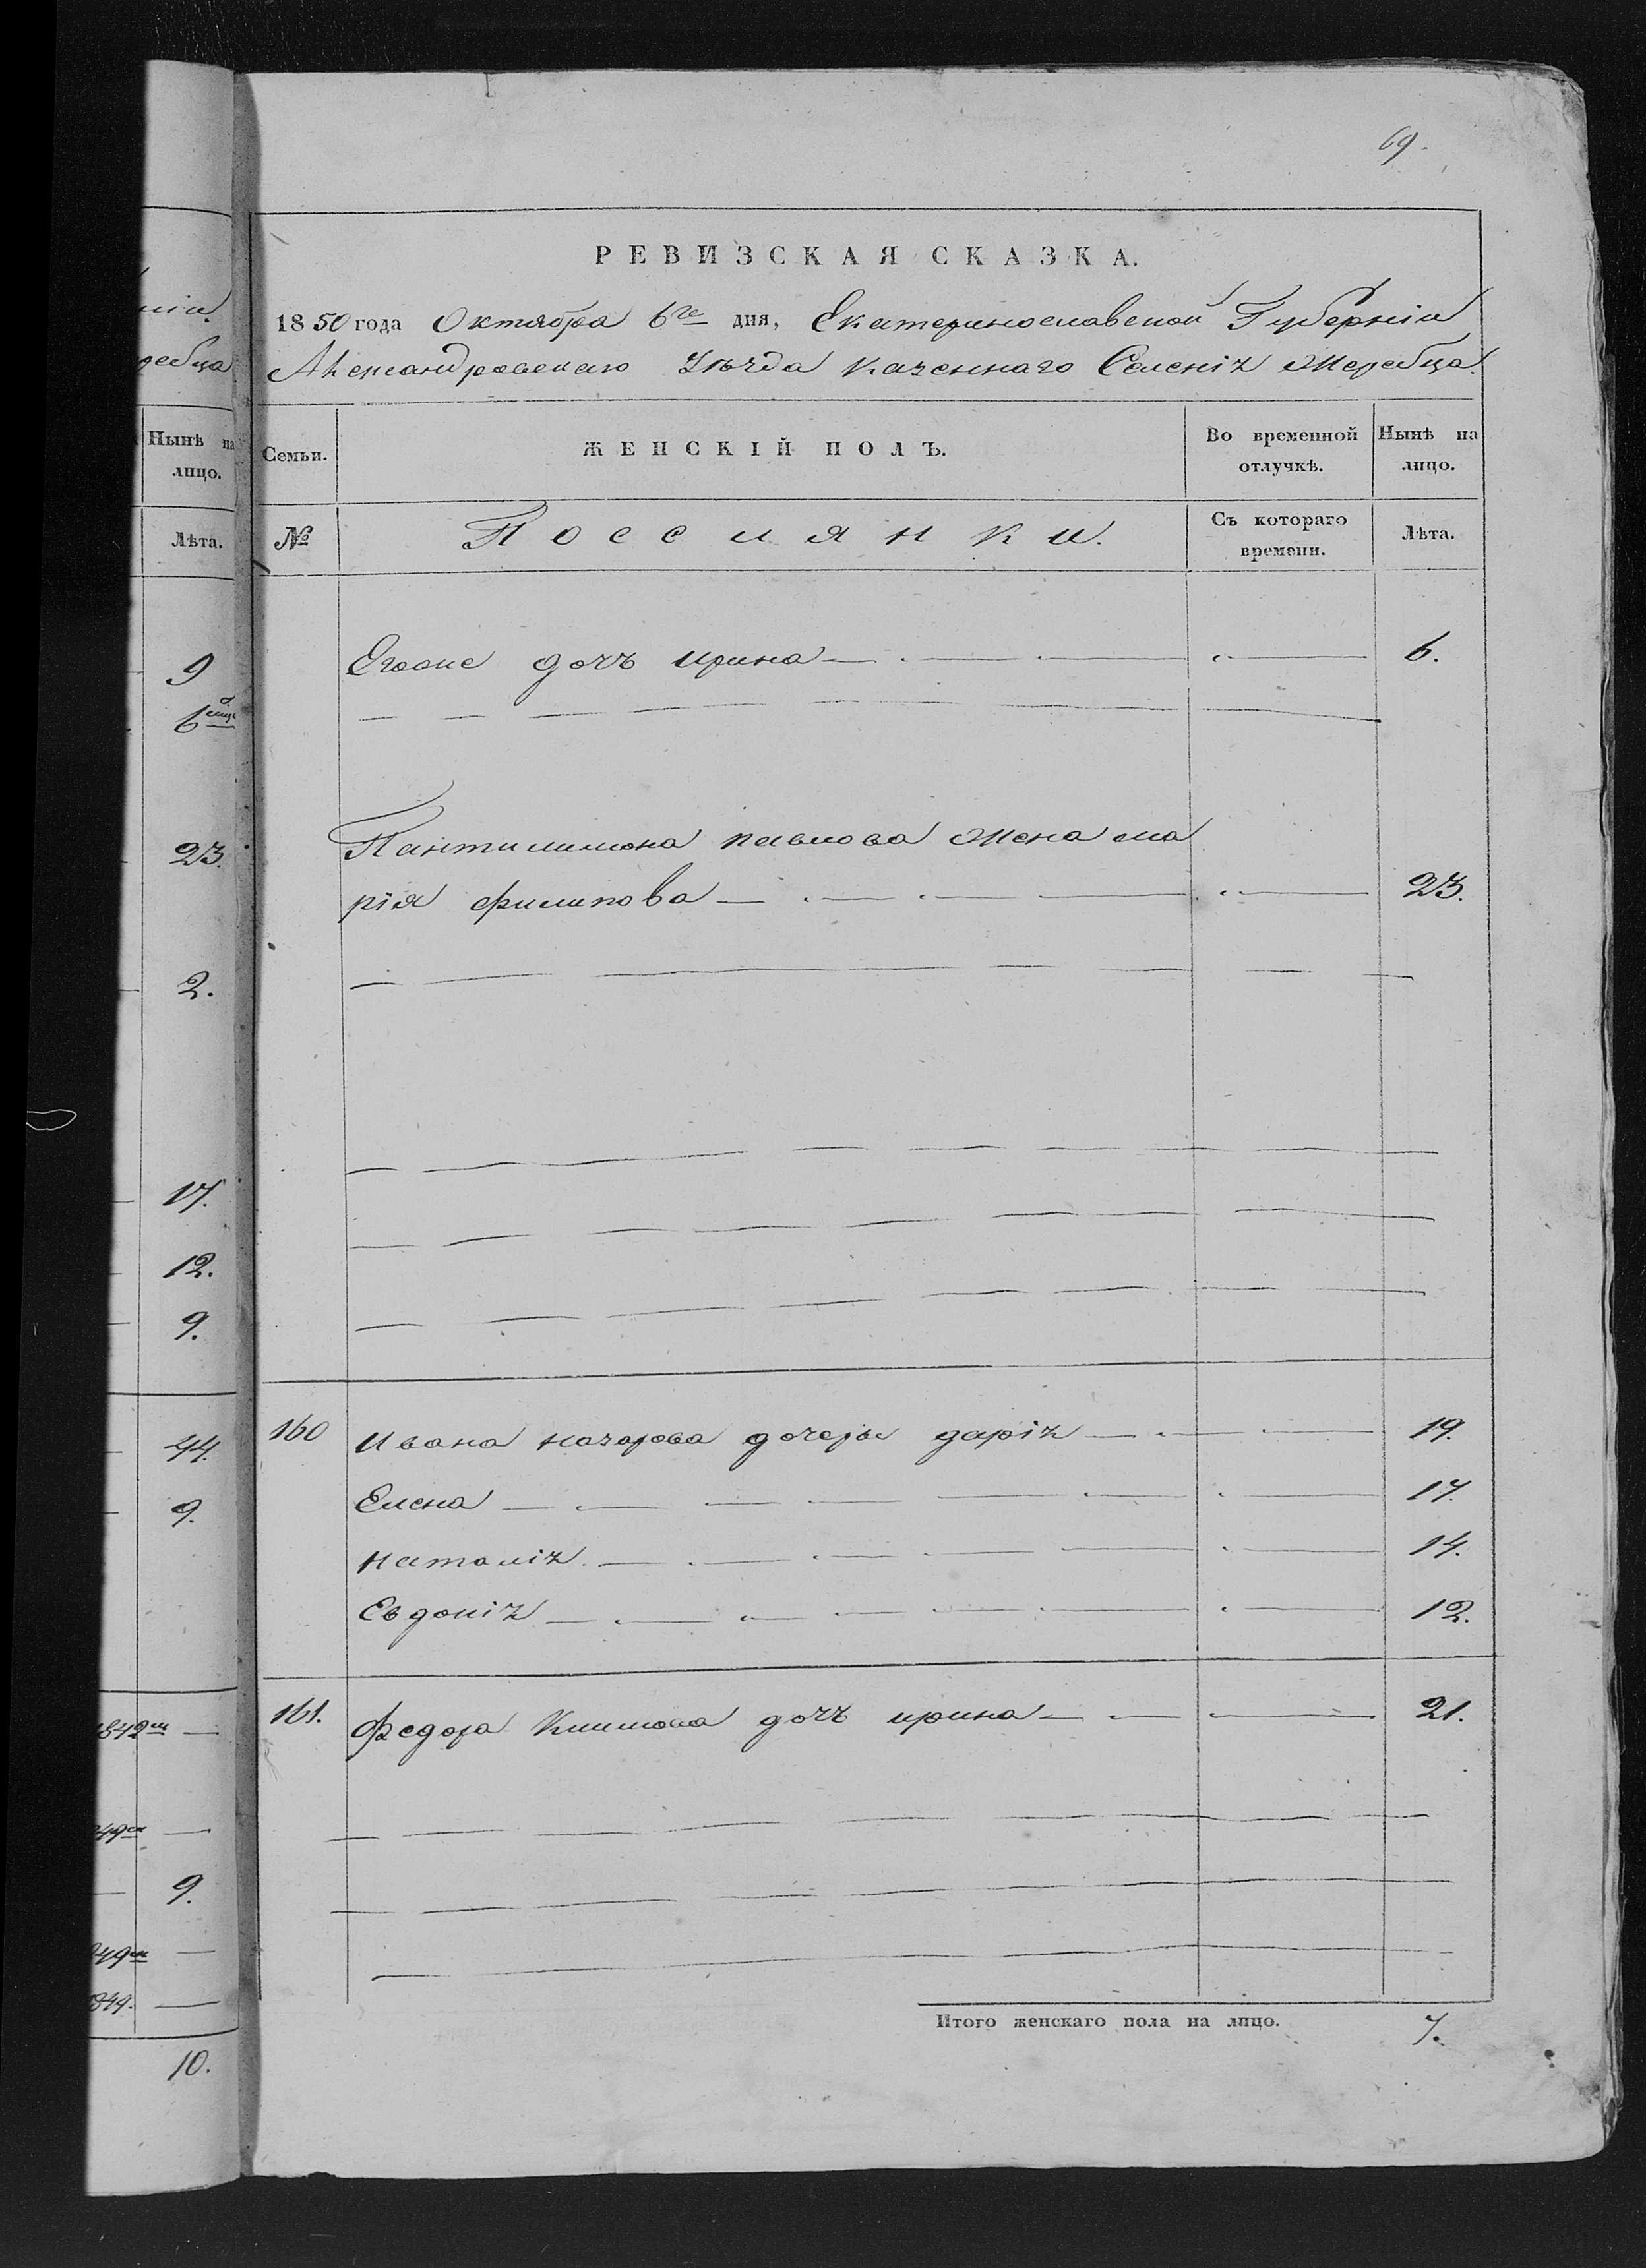 69.
РЕВИЗСКАЯ СКАЗКА.
1850 года Октября 6го дня, Екатеринославской Губерніи
Александровскаго Уѣзда казеннаго Селенія Жеребца.
Нынѣ на лицо.
Семьи.
ЖЕНСКІЙ ПОЛЪ.
Во временной отлучкѣ.
Нынѣ на лицо.
Лѣта.
№
Россиянки.
Съ котораго времени.
Лѣта.
9
Егоже дочъ ирина 6.
23.
Пантилимона павлова жена ма
рія филипова 23.
2.
17.
12.
9.
160 Ивана назарова дочеры дарія 19.
44.
Елена 17.
9.
Наталія 14.
Евдокія 12.
161. Федора Климова дочъ ирина 21.
9.
Итого женскаго пола на лицо. 7.
10.